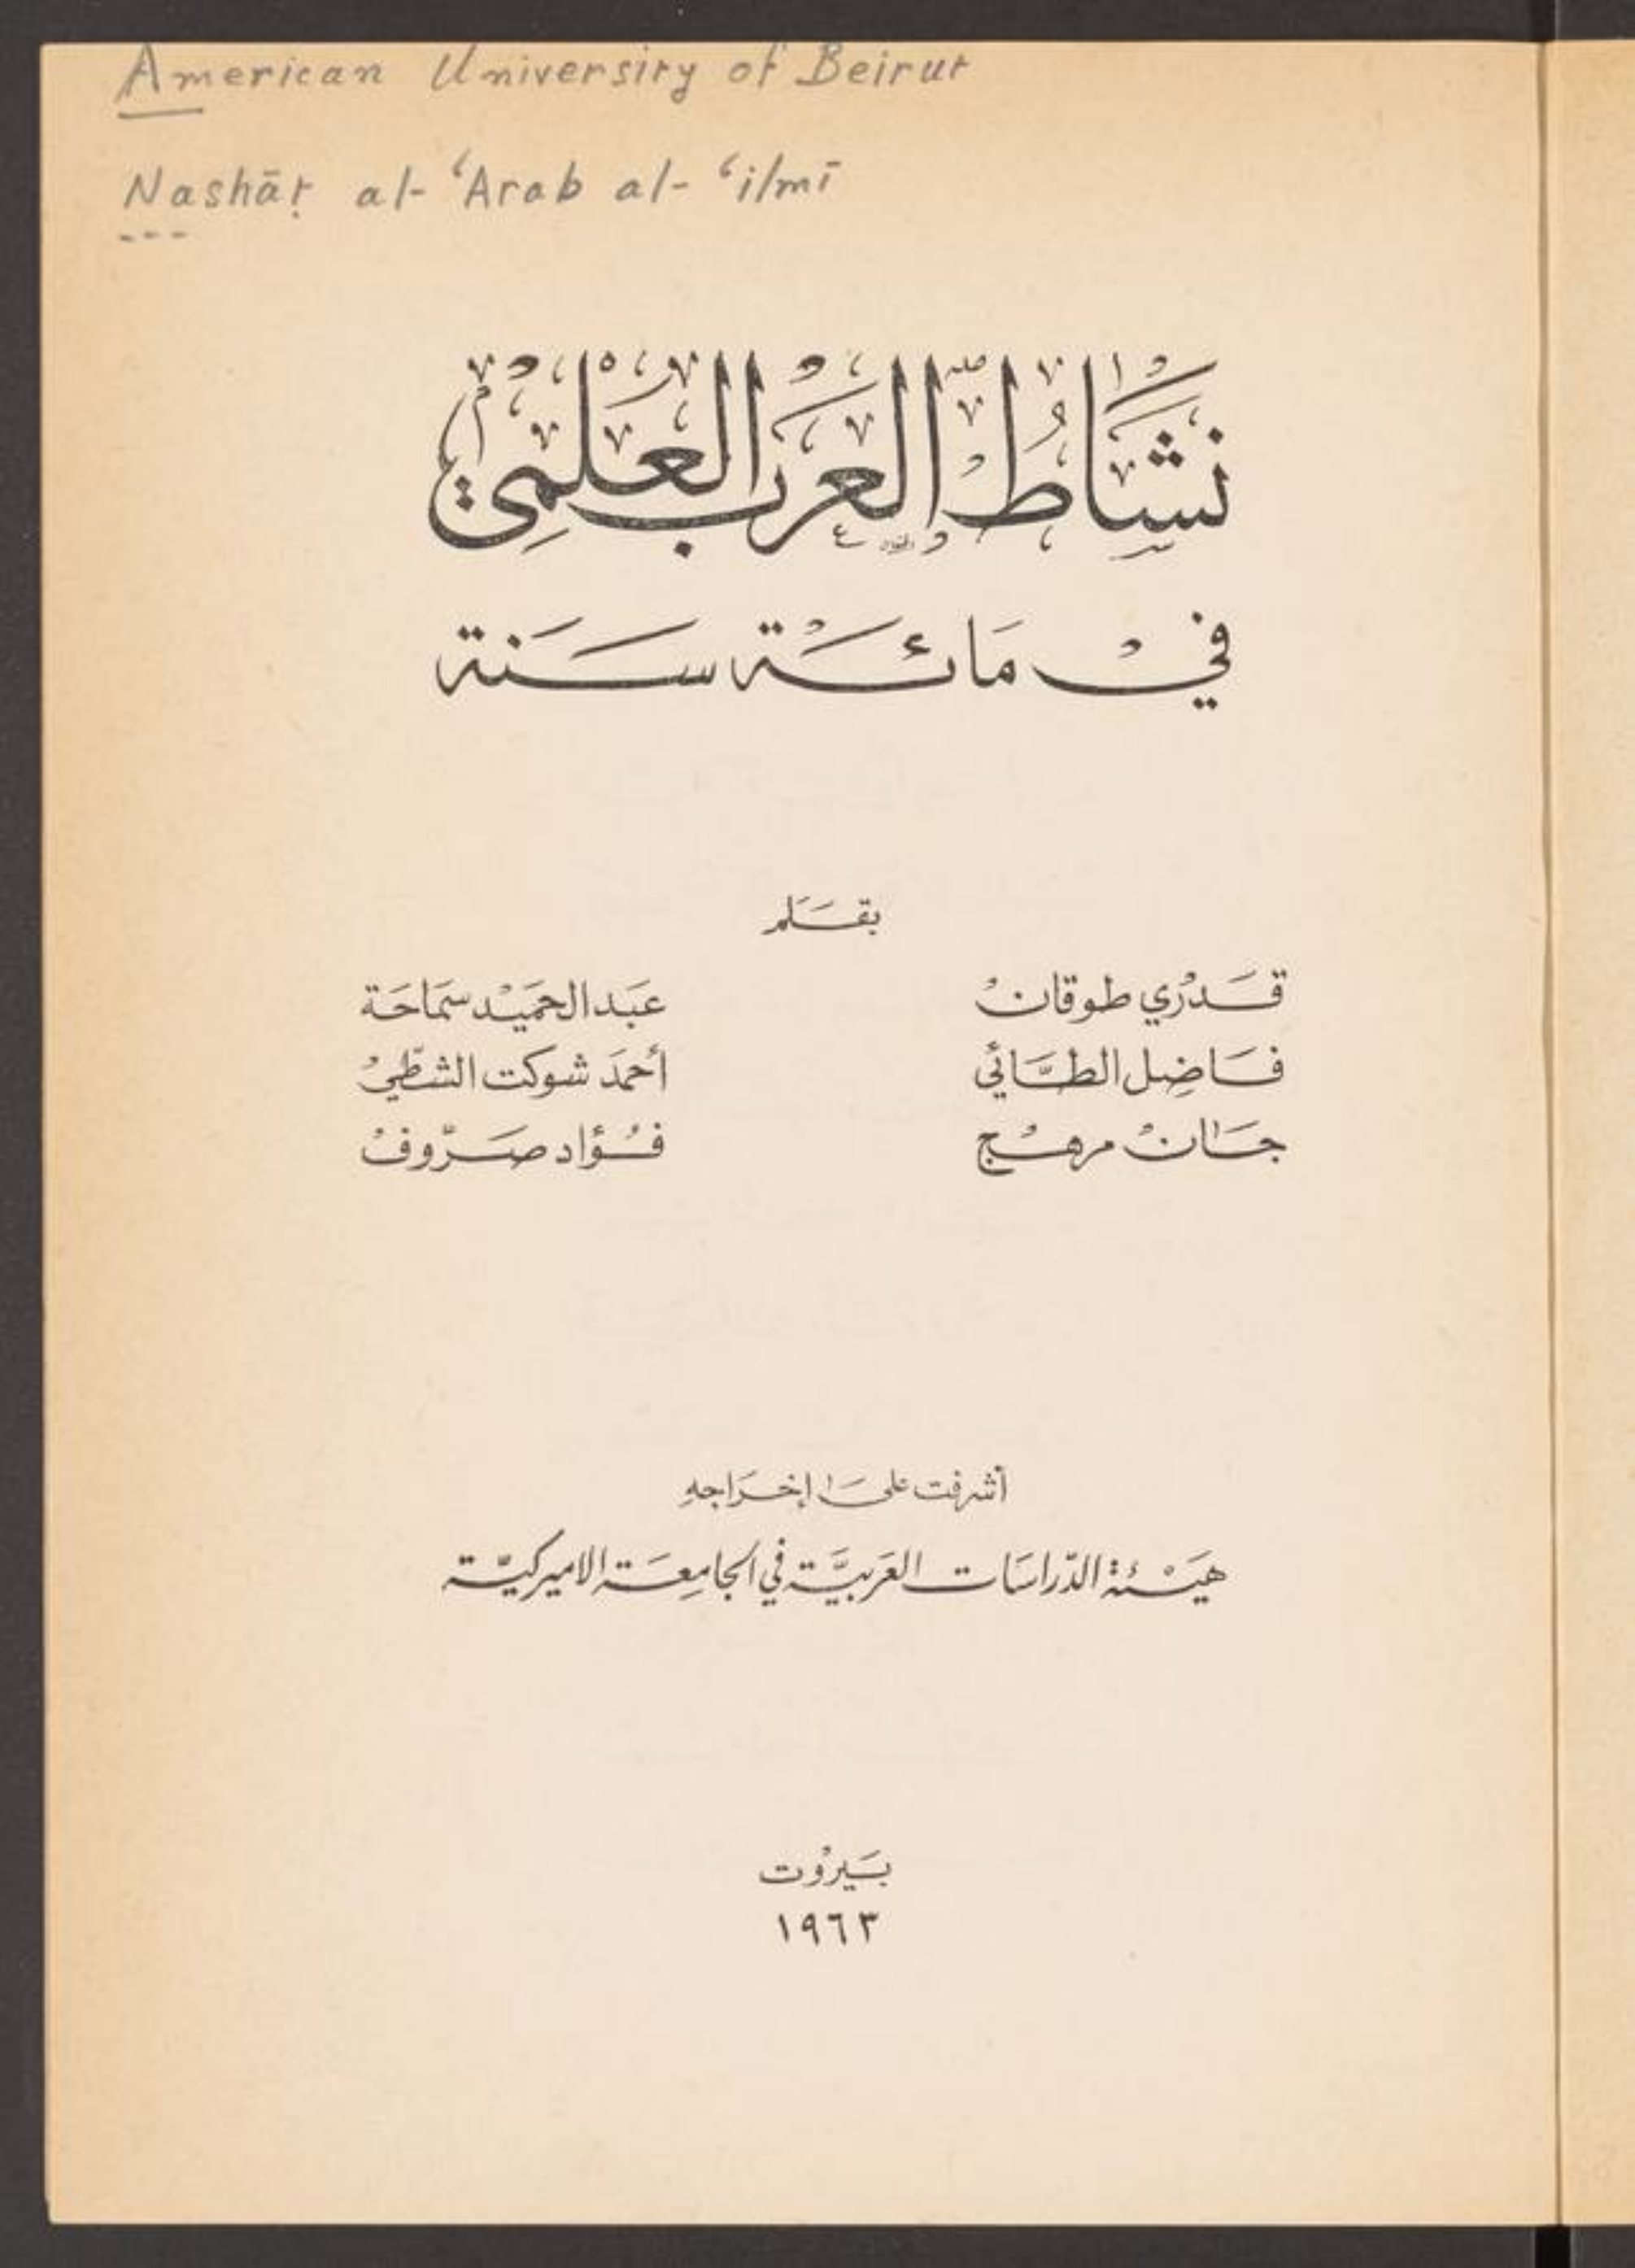 American University of Beirut
Nashāṭ al-ʿArab al-ʿilmī
نشاط العرب العلمي
في مائة سنة
بقلم
قدري طوقان عبد الحميد سماحة
فاضل الطائي أحمد شوكت الشطي
جان مرهج فؤاد صروف
أشرفت على إخراجه
هيئة الدراسات العربية في الجامعة الاميركية
بيروت
١٩٦٣